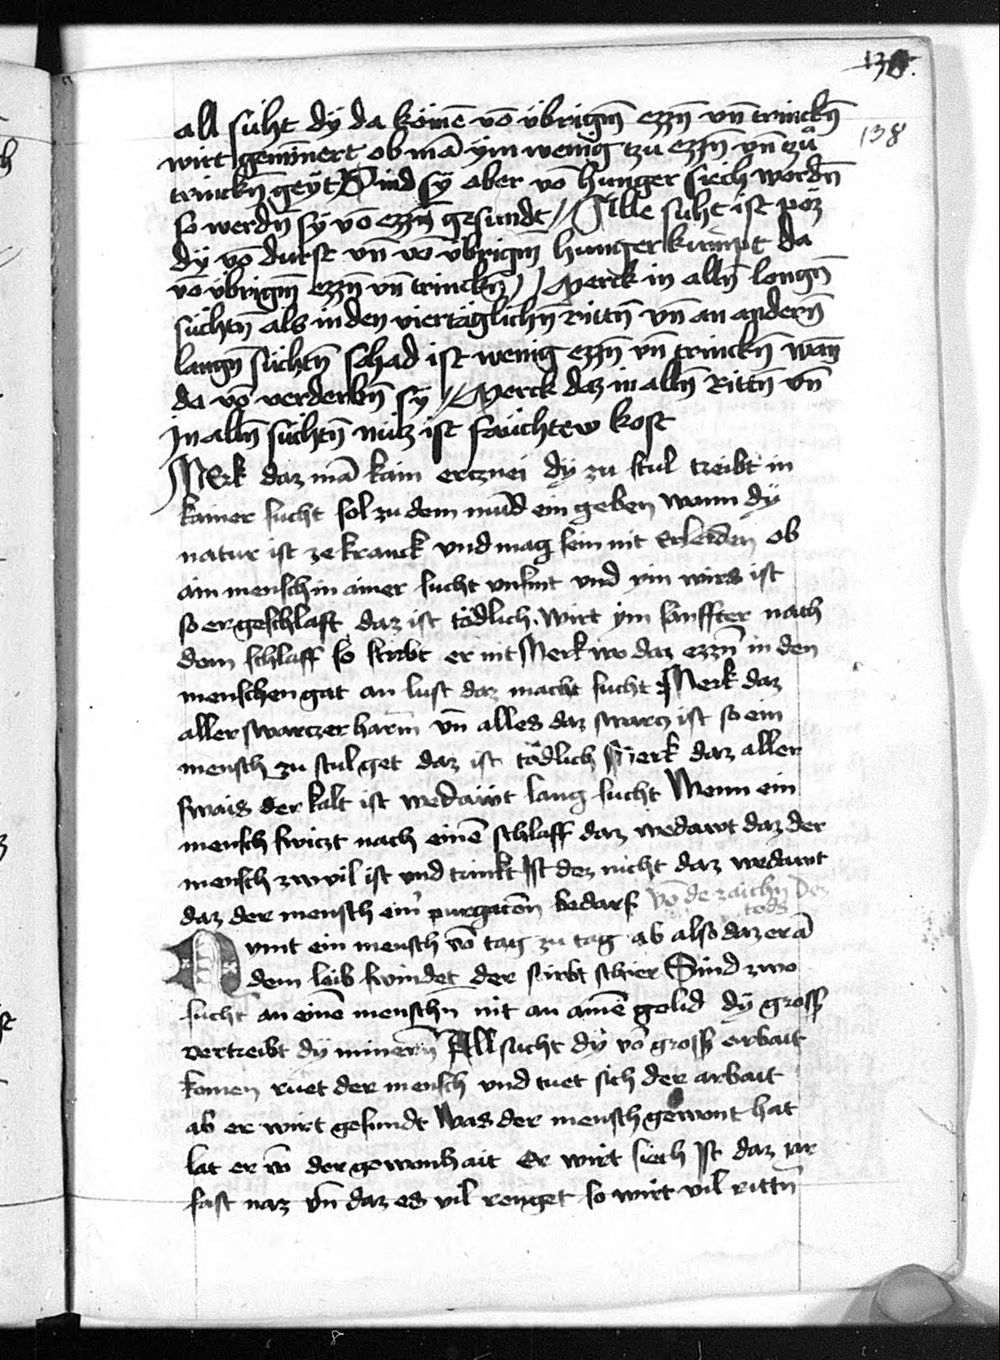 138
138
all suht dÿ da kömē vō übrigm̄ ezzn̄ vn̄ trinckn̄
wirt gemÿnert ob mā ÿm wenig tzu ezzn̄ vn̄ zů
trinckn̄ geÿt Sind sÿ aber vō hunger siech wordn̄
so werdn̄ sÿ vō ezzn̄ gesundt / Alle suht ist pöz
dÿ vō durst vn̄ vō übrigm̄ hunger kumpt da
vō übrigm̄ ezzn̄ vn̄ trinckn̄ / Merck in alln̄ longn̄
süchtn̄ als in den viertäglichn̄ rittn̄ vn̄ an andern̄
langn̄ süchtn̄ schad ist wenig ezzn̄ vn̄ trinckn̄ wan̄
da vō verderbn̄ sÿ / Merck daz in alln̄ Rittn̄ vn̄
In alln̄ süchtn̄ nücz ist fäuchtew kost
MErk daz mā kain ercznei dÿ zu stul treibt in
kainer sucht sol zu dem mūd ein geben wann dÿ
natur ist ze kranck vnd mag sein nit erleiden ob
ain mensch in ainer sucht vnsint vnd ÿm wirs ist
so er geschlaft daz ist tödlich. wirt ÿm sanffter nach
dem schlaff so stirbt er nit Merk wo daz ezzn̄ in den
menschen gat an lust daz macht sucht Merk daz
aller swarczer harm vn̄ alles daz swarcz ist so ein
mensch zu stul get daz ist tödlich Merk daz aller
swais der kalt ist wedäwt lang sucht Wenn ein
mensch swiczt nach einē schlaff daz wedawt daz der
mensch zwvil ist vnd trinkt Ist dez nicht daz wedawt
daz der mensch ein' purgacōn bedarf vō de zaichn Dez
tods
Nvmt ein mensch vō tag zu tag ab also daz er ā
dem leib swindet der stirbt schier Sind zwo
sucht an einē menschn nit an ainē gelid dÿ gross
vertreibt dÿ minern̄ All sucht dÿ vō gross arbait
komen ruet der mensch vnd tuet sich der arbait
ab er wirt gesundt Was der mensch gewont hat
lat er vō der gewonhait Er wirt siech Ist daz jar
fast naz vn̄ daz es vil renget so wirt vil rittn̄